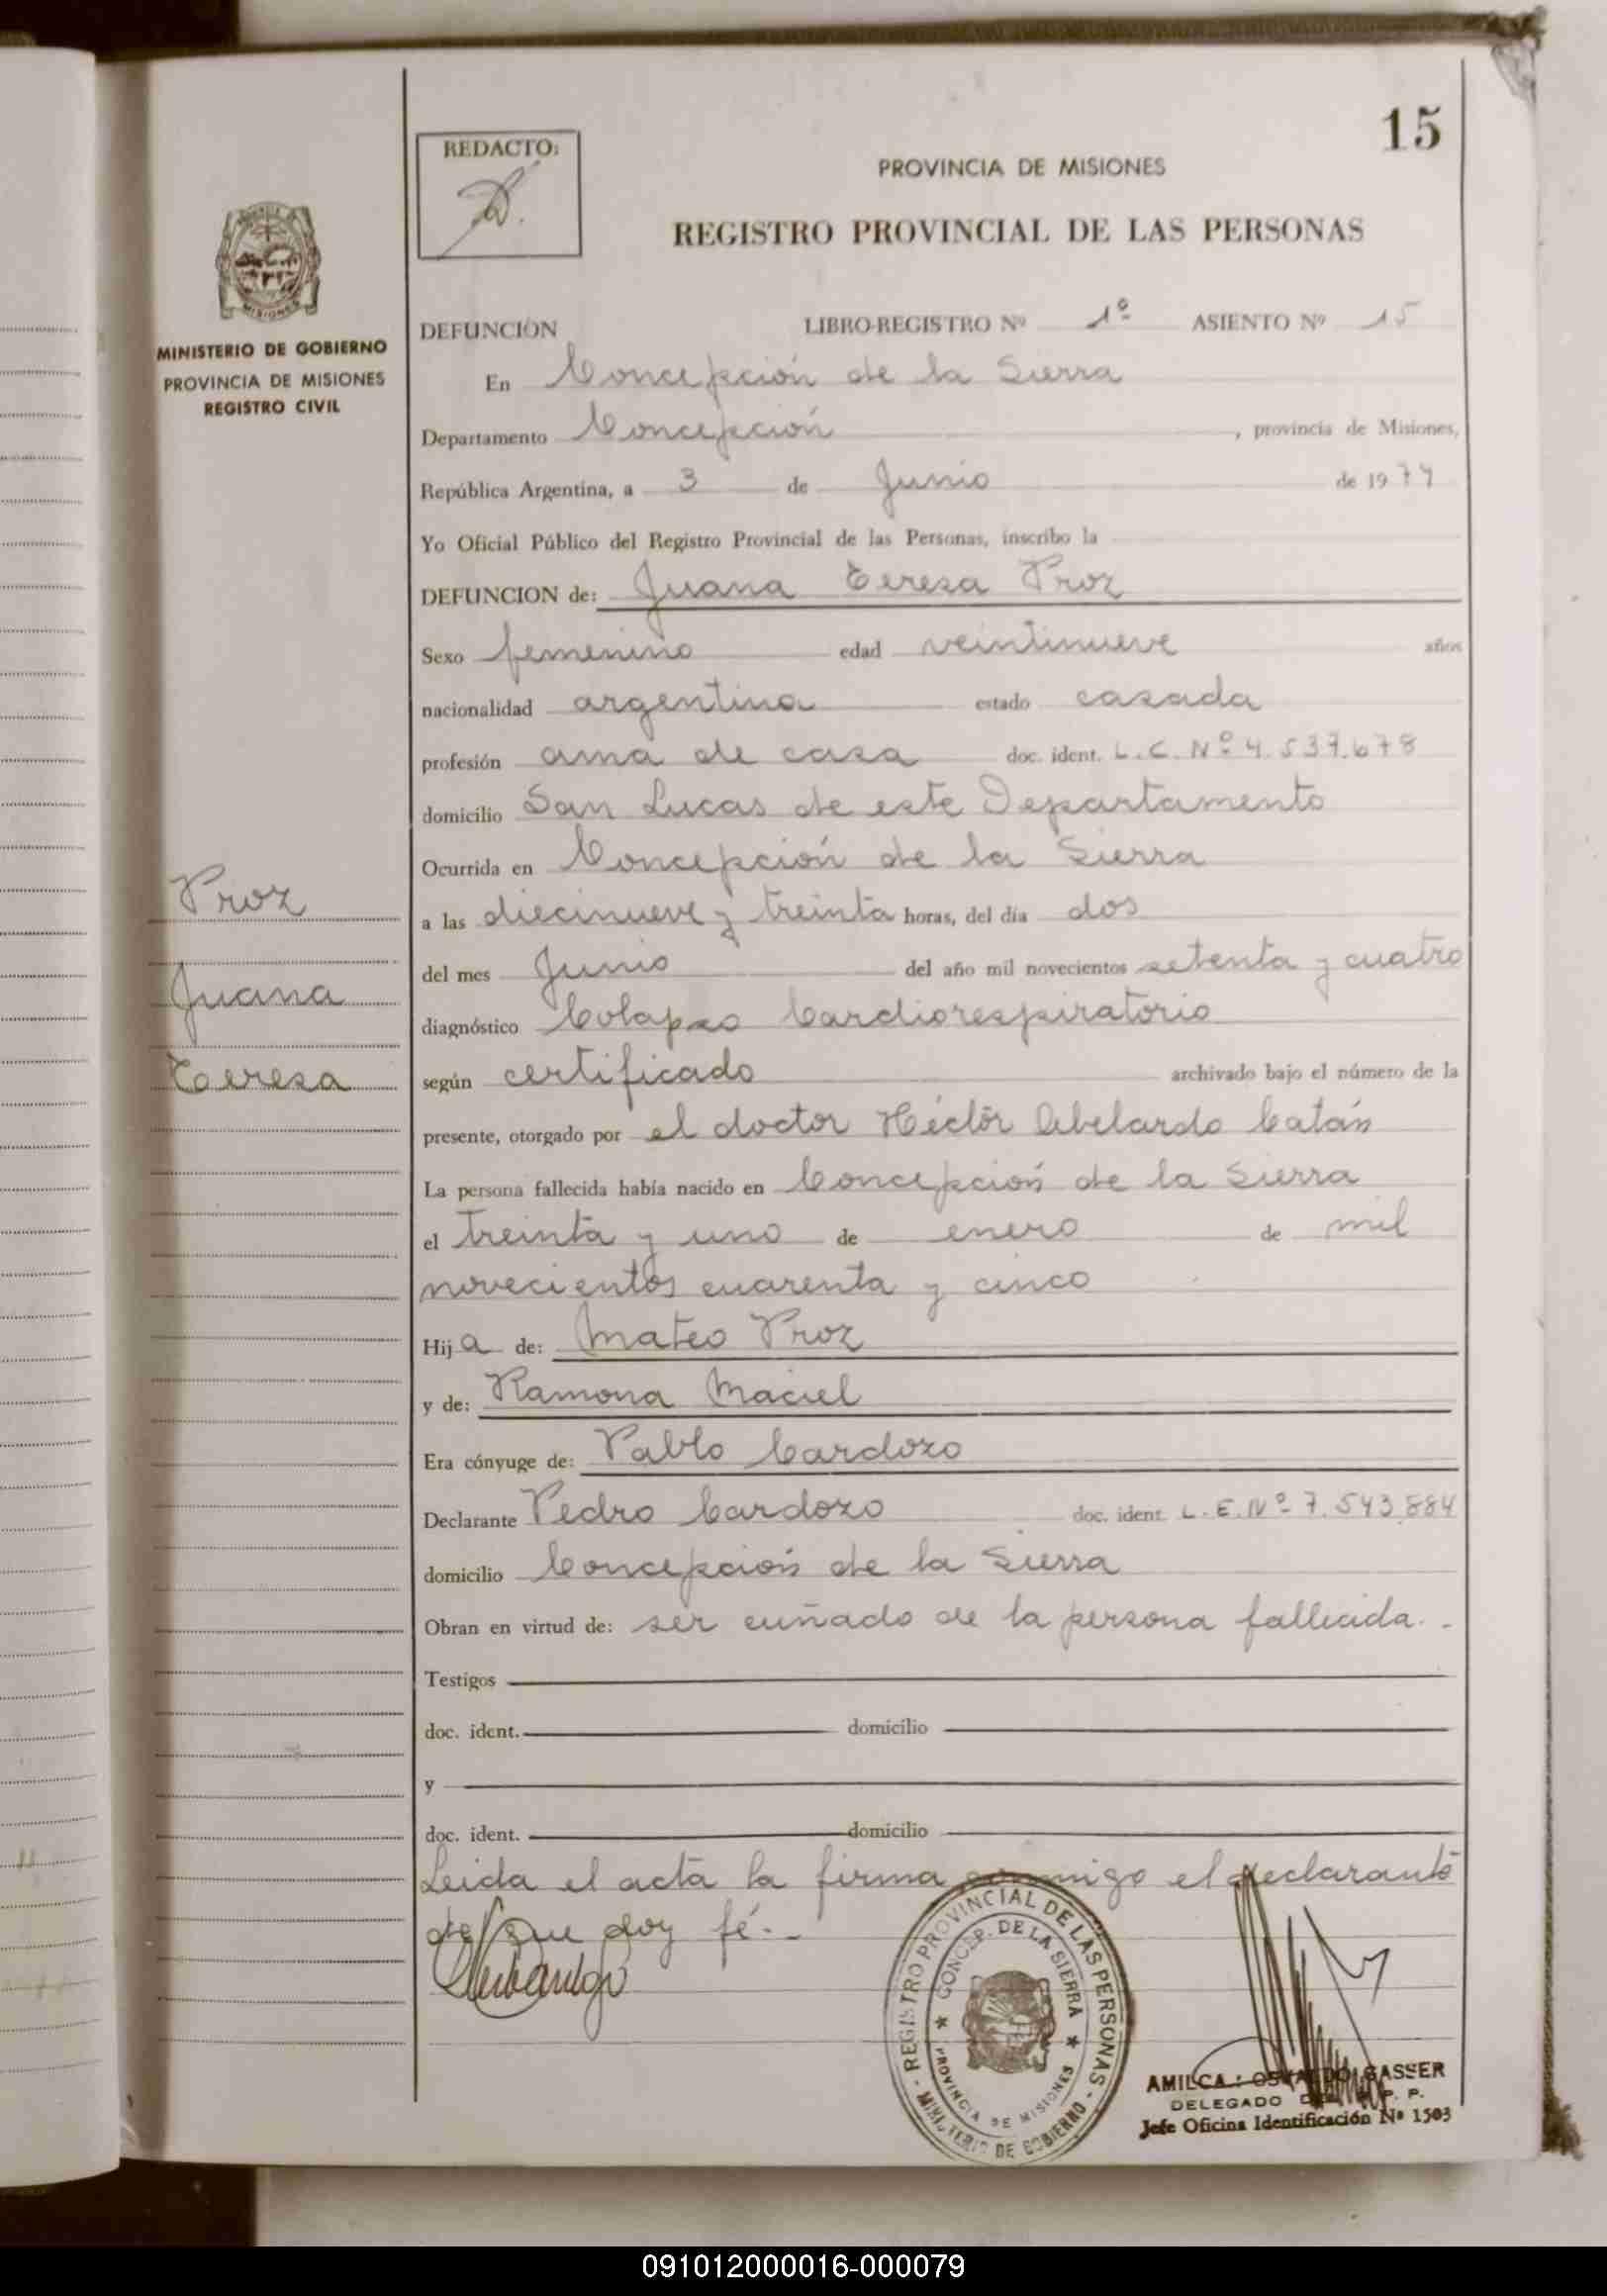 15
REDACTO:
PROVINCIA DE MISIONES
REGISTRO PROVINCIAL DE LAS PERSONAS
MINISTERIO DE GOBIERNO
PROVINCIA DE MISIONES
REGISTRO CIVIL
DEFUNCIÓN LIBRO-REGISTRO Nº 1º ASIENTO Nº 15
En Concepción de la Sierra
Departamento Concepción, provincia de Misiones,
República Argentina, a 3 de Junio de 1974
Yo Oficial Público del Registro Provincial de las Personas, inscribo la
DEFUNCION de: Juana Teresa Proz
Sexo femenino edad veintinueve años
nacionalidad argentina estado casada
profesión ama de casa doc. ident. L.C. Nº 4.537.678
domicilio San Lucas de este Departamento
Ocurrida en Concepción de la Sierra
a las diecinueve y treinta horas, del día dos
del mes Junio del año mil novecientos setenta y cuatro
diagnóstico Colapso Cardiorespiratorio
según certificado archivado bajo el número de la
presente, otorgado por el doctor Héctor Abelardo Catán
La persona fallecida había nacido en Concepción de la Sierra
el treinta y uno de enero de mil
novecientos cuarenta y cinco
Hija de: Mateo Proz
y de: Ramona Maciel
Era cónyuge de: Pablo Cardozo
Declarante Pedro Cardozo doc. ident. L.E. Nº 7.543.884
domicilio Concepción de la Sierra
Obran en virtud de: ser cuñado de la persona fallecida.-
Testigos
doc. ident. domicilio
y
doc. ident. domicilio
Leida el acta la firma conmigo el declarante
de que doy fé.-
Proz
Juana
Teresa
REGISTRO PROVINCIAL DE LAS PERSONAS - MINISTERIO DE GOBIERNO -
CONCEP. DE LA SIERRA
PROVINCIA DE MISIONES
AMILCA: OSVALDO GASSER
DELEGADO P. P.
Jefe Oficina Identificación Nº 1503
091012000016-000079